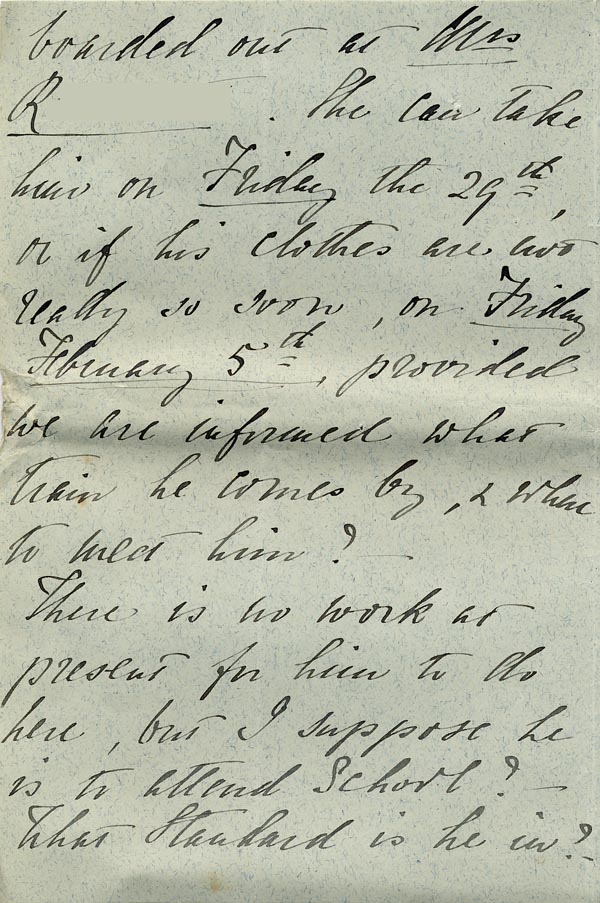 boarded out at Mrs
R . She can take
him on Friday the 29th,
or if his clothes are not
ready so soon, on Friday
February 5th, provided
we are informed what
train he comes by, & when
to meet him? —
There is no work at
present for him to do
here, but I suppose he
is to attend School? —
What Standard is he in?